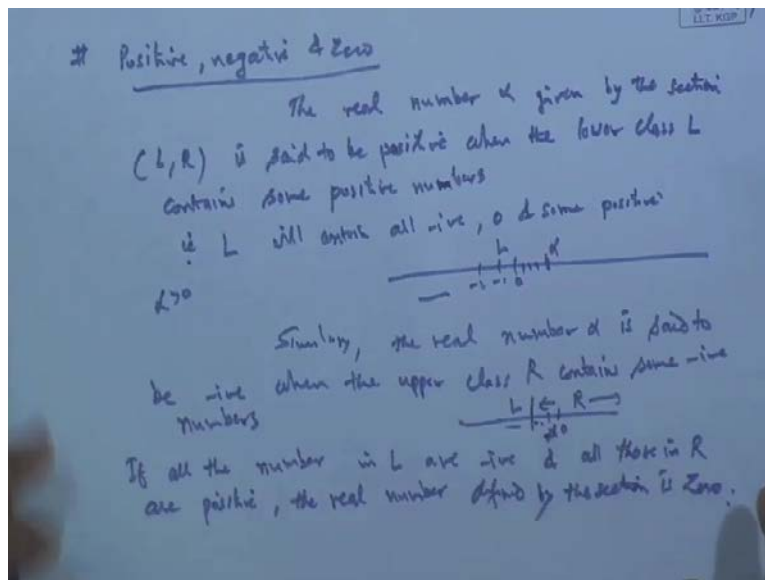 I.I.T. KGP
# Positive, negative & Zero
The real number α given by the section
(L, R) is said to be positive when the lower class L
contains some positive numbers
ie L will contain all -ive, 0 & some positive
L α
-2 -1 0
α>0
Similarly, the real number α is said to
be -ive when the upper class R contains some -ive
numbers
L R
α 0
If all the number in L are -ive & all those in R
are positive, the real number defined by the section is Zero.